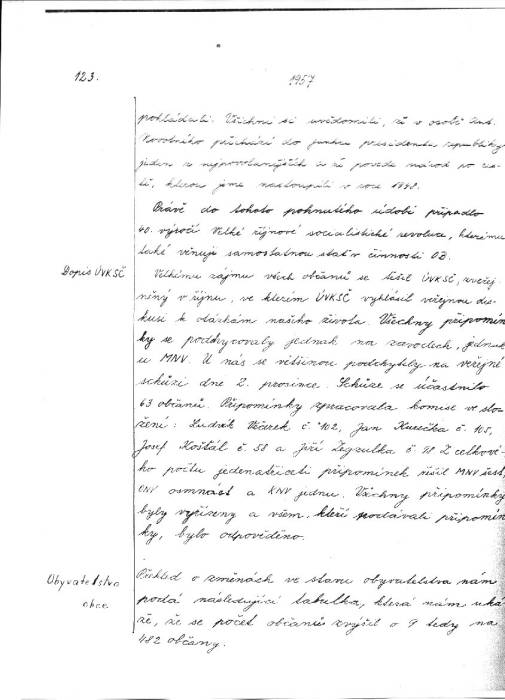 123.
1957
pohlédali. Všichni si uvědomili, že v osobě Ant.
Novotného přichází do funkce presidenta republiky
jeden z nejpovolanějších a že povede národ po ces-
tě, kterou jsme nastoupili v roce 1948.
Právě do tohoto pohnutého údobí připadlo
40. výročí Velké říjnové socialistické revoluce, kterému
také věnuje samostatnou stať v činnosti OB.
Dopis ÚVKSČ
Velkému zájmu všech občanů se těšil ÚVKSČ, zveřej
něný v říjnu, ve kterém ÚVKSČ vyhlásil veřejnou dis-
kusi k otázkám našeho života. Všechny připomín
ky se podchycovaly jednak na závodech, jednak
u MNV. U nás se většinou podchytily na veřejné
schůzi dne 2. prosince. Schůze se účastnilo
63 občanů. Připomínky zpracovala komise ve slo-
žení: Ludvík Věčerek č. 102, Jan Kurečka č. 105,
Josef Košťál č. 58 a Jiří Zegzulka č. 78 Z celkové-
ho počtu jedenatřiceti připomínek řešil MNV šest,
ONV osmnáct a KNV jednu. Všechny připomínky
byly vyřízeny a všem, kteří podávali připomín
ky, bylo odpověděno.
Obyvatelstvo
obce
Přehled o změnách ve stavu obyvatelstva nám
podá následující tabulka, která nám uká
že, že se počet občanů zvýšil o 9 tedy na
482 občany.